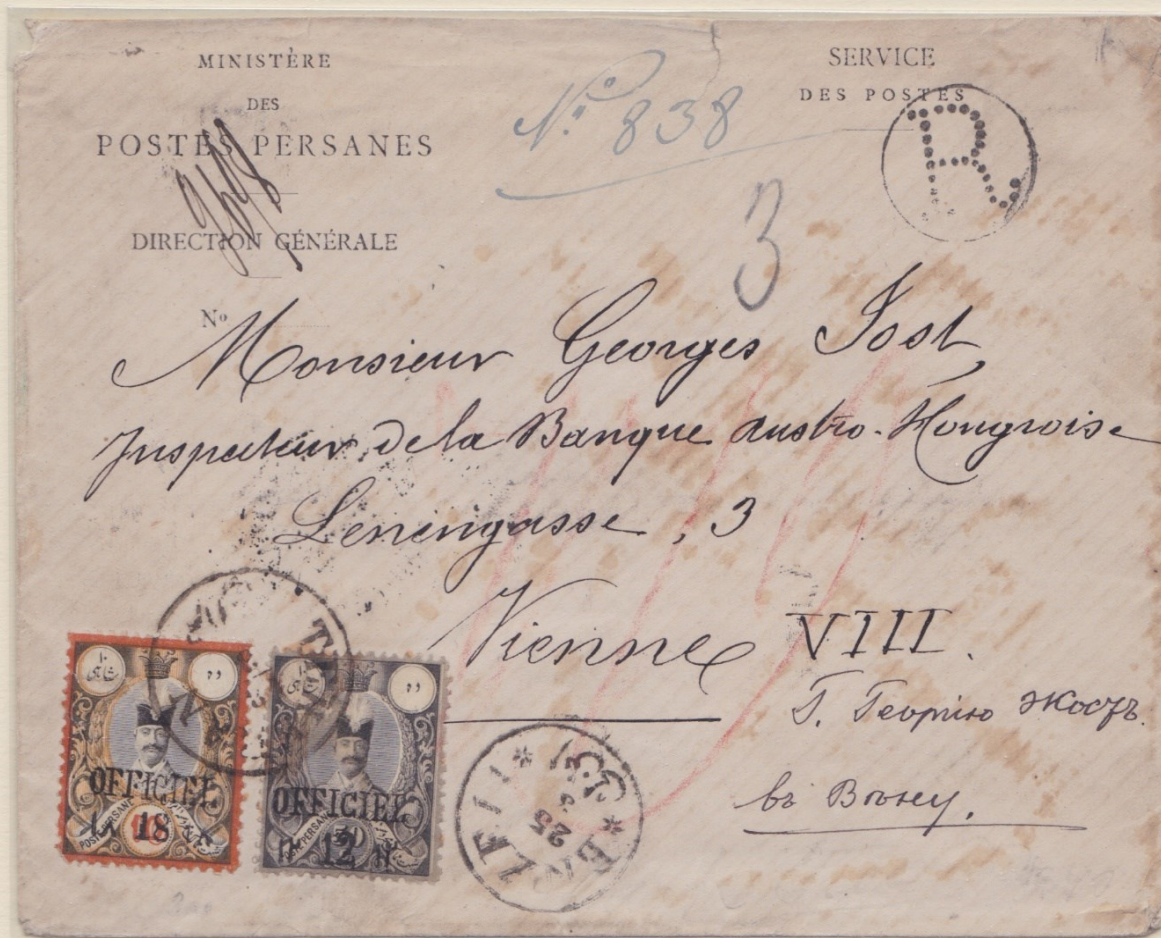 MINISTÈRE
DES
POSTES PERSANES
DIRECTION GÉNÉRALE
Nº
SERVICE
DES POSTES
Nº 838
R
3
Monsieur Georges Jost,
Inspecteur de la Banque austro-Hongroise
Lenengasse, 3
Vienne VIII.
Г. Георгію Жостъ.
въ Вѣну.
OFFICIEL
18
١٨
POSTE PERSANE
OFFICIEL
12
POSTE PERSANE
* ENZELI *
25